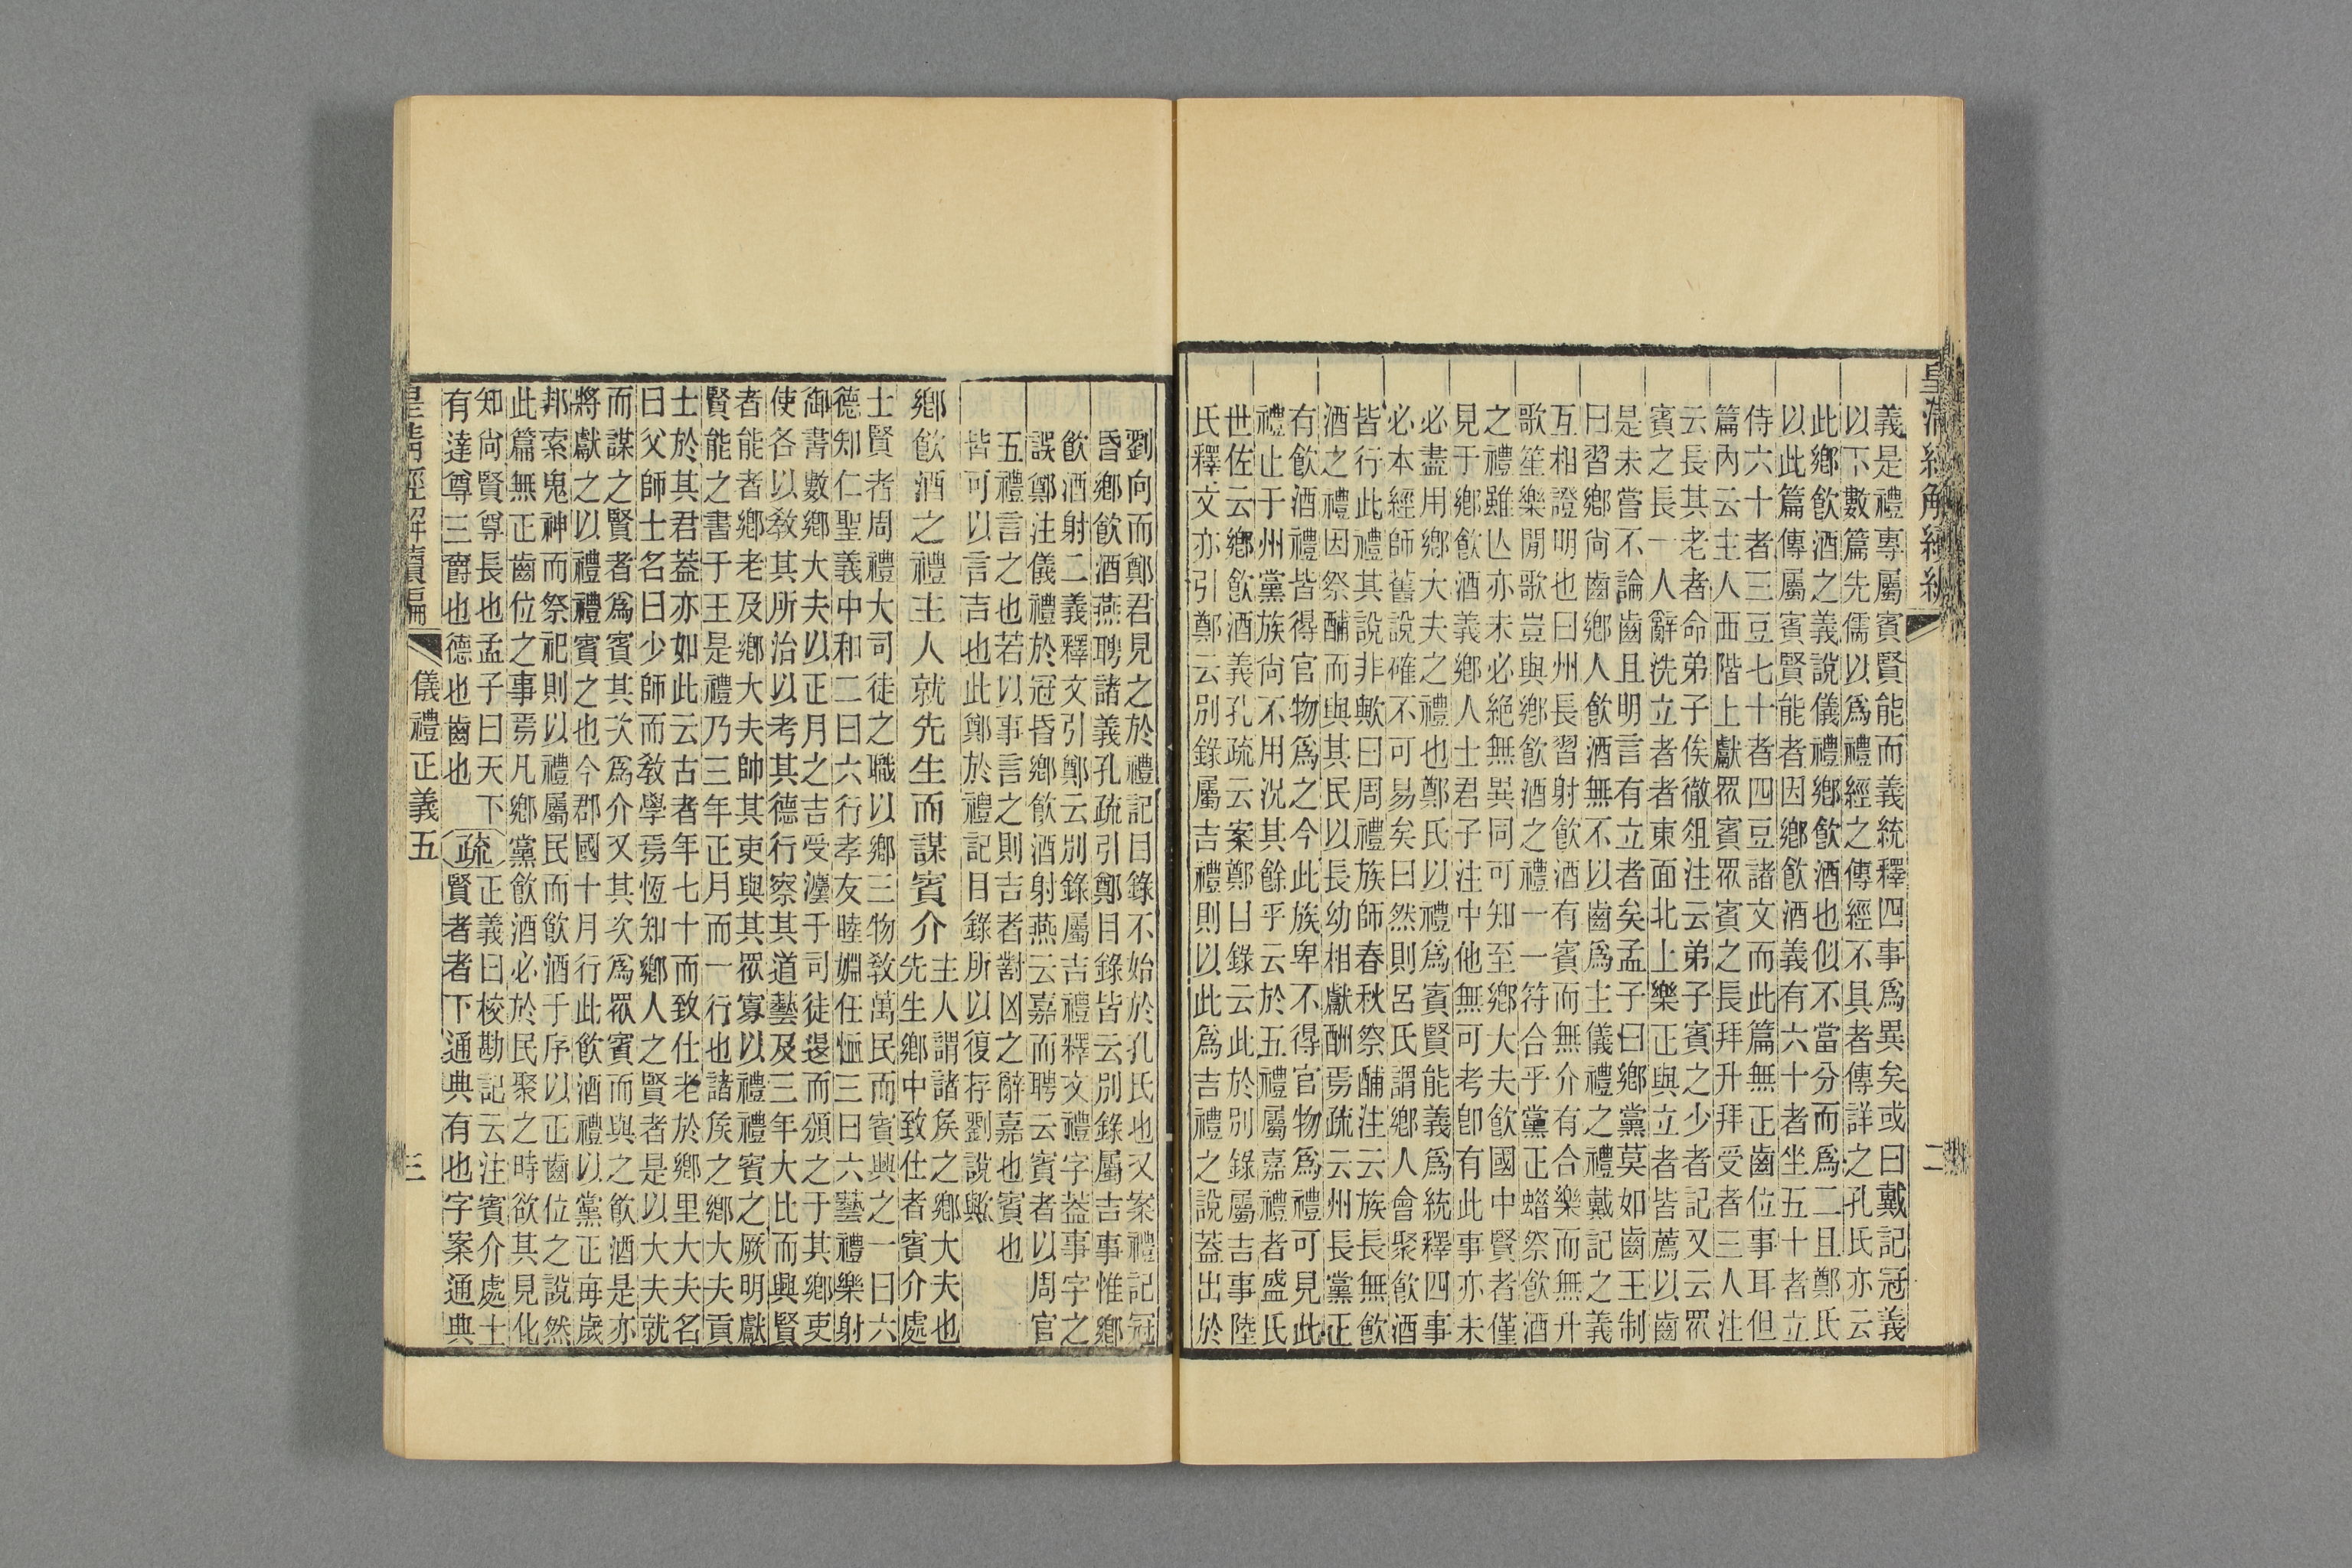 皇清經解續編
二
義是禮專屬賓賢能而義統釋四事爲異矣或曰戴記冠義
以下數篇先儒以爲禮經之傳經不具者傳詳之孔氏亦云
此鄉飮酒之義說儀禮鄉飮酒也似不當分而爲二且鄭氏
以此篇傳屬賓賢能者因鄉飮酒義有六十者坐五十者立
侍六十者三豆七十者四豆諸文而此篇無正齒位事耳但
篇內云主人西階上獻眾賓眾賓之長拜升拜受者三人注
云長其老者命弟子俟徹俎注云弟子賓之少者記又云眾
賓之長一人辭洗立者東面北上樂正與立者皆薦以齒
是未嘗不論齒且明言有立者矣孟子曰鄉黨莫如齒王制
曰習鄉尙齒鄉人飮酒無不以齒爲主儀禮之禮戴記之義
互相證明也曰州長習射飮酒有賓而無介有合樂而無升
歌笙樂閒歌豈與鄉飮酒之禮一一符合乎黨正蜡祭飮酒
之禮雖亾亦未必絕無異同可知至鄉大夫飮國中賢者僅
見于鄉飮酒義鄉人士君子注中他無可考卽有此事亦未
必盡用鄉大夫之禮也鄭氏以禮爲賓賢能義爲統釋四事
必本經師舊說確不可易矣曰然則呂氏謂鄉人會聚飮酒
皆行此禮其說非歟曰周禮族師春秋祭酺注云族長無飮
酒之禮因祭酺而與其民以長幼相獻酬焉疏云州長黨正
有飮酒禮皆得官物爲之今此族卑不得官物爲禮可見此
禮止于州黨族尙不用況其餘乎云於五禮屬嘉禮者盛氏
世佐云鄉飮酒義孔疏云案鄭目錄云此於別錄屬吉事陸
氏釋文亦引鄭云別錄屬吉禮則以此爲吉禮之說蓋出於
劉向而鄭君見之於禮記目錄不始於孔氏也又案禮記冠
昏鄉飮酒燕聘諸義孔疏引鄭目錄皆云別錄屬吉事惟鄉
飮酒射二義釋文引鄭云別錄屬吉禮釋文禮字蓋事字之
誤鄭注儀禮於冠昏鄉飮酒射燕云嘉而聘云賓者以周官
五禮言之也若以事言之則吉者對凶之辭嘉也賓也
皆可以言吉也此鄭於禮記目錄所以復存劉說歟
鄉飮酒之禮主人就先生而謀賓介
主人謂諸矦之鄉大夫也
先生鄉中致仕者賓介處
士賢者周禮大司徒之職以鄉三物敎萬民而賓興之一曰六
德知仁聖義中和二曰六行孝友睦婣任恤三曰六藝禮樂射
御書數鄉大夫以正月之吉受灋于司徒退而頒之于其鄉吏
使各以敎其所治以考其德行察其道藝及三年大比而興賢
者能者鄉老及鄉大夫帥其吏與其眾寡以禮禮賓之厥明獻
賢能之書于王是禮乃三年正月而一行也諸矦之鄉大夫貢
士於其君蓋亦如此云古者年七十而致仕老於鄉里大夫名
曰父師士名曰少師而敎學焉恆知鄉人之賢者是以大夫就
而謀之賢者爲賓其次爲介又其次爲眾賓而與之飮酒是亦
將獻之以禮禮賓之也今郡國十月行此飮酒禮以黨正每歲
邦索鬼神而祭祀則以禮屬民而飮酒于序以正齒位之說然
此篇無正齒位之事焉凡鄉黨飮酒必於民聚之時欲其見化
知尙賢尊長也孟子曰天下
有達尊三爵也德也齒也
疏
正義曰校勘記云注賓介處士
賢者者下通典有也字案通典
皇淸經解續編
儀禮正義五
三